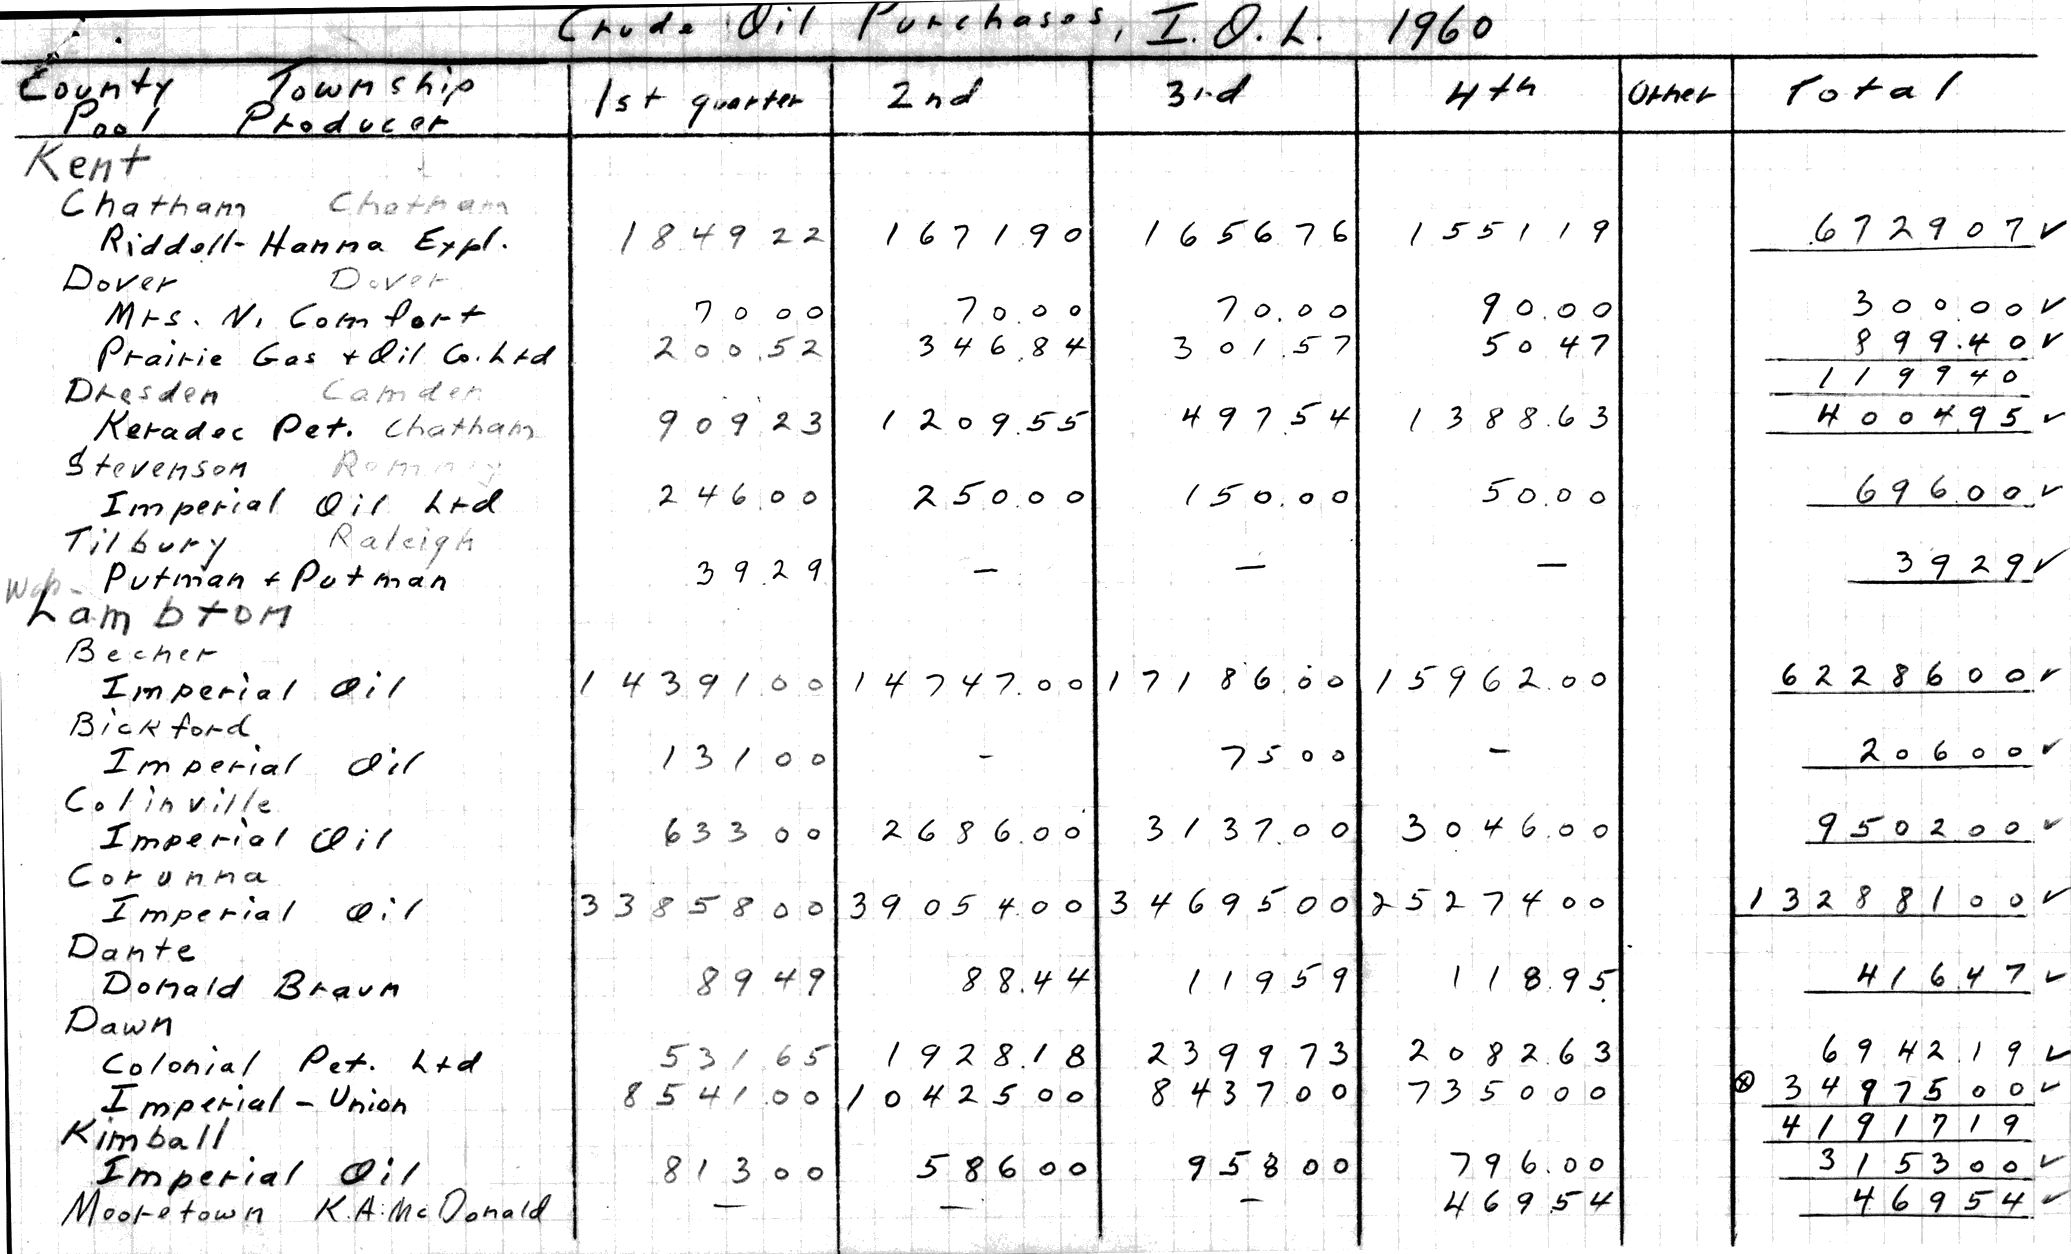 Crude Oil Purchases, I.O.L. 1960
County Township 1st quarter 2nd 3rd 4th Other Total
Pool Producer
Kent
Chatham Chatham
Riddell-Hanna Expl. 184922 167190 165676 155119 672907 ✓
Dover Dover
Mrs. N. Comfort 7000 70.00 70.00 90.00 30000 ✓
Prairie Gas + Oil Co. Ltd 200.52 346.84 301.57 5047 899.40 ✓
119940
Dresden Camden
Keradec Pet. Chatham 90923 1209.55 49754 1388.63 400495 ✓
Stevenson Romney
Imperial Oil Ltd 24600 250.00 150.00 50.00 69600 ✓
Tilbury Raleigh
Putman + Putman 3929 – – – 3929 ✓
Lambton
Becher
Imperial Oil 14391.00 14747.00 17186.00 15962.00 6228600 ✓
Bickford
Imperial Oil 13100 – 7500 – 20600 ✓
Colinville
Imperial Oil 63300 2686.00 3137.00 3046.00 950200 ✓
Corunna
Imperial Oil 3385800 3905400 3469500 2527400 13288100 ✓
Dante
Donald Braun 8949 88.44 11959 118.95 41647 ✓
Dawn
Colonial Pet. Ltd 53165 1928.18 239973 2082.63 694219 ✓
Imperial - Union 8541.00 1042500 843700 735000 ⊗ 3497500 ✓
4191719
Kimball
Imperial Oil 81300 58600 95800 796.00 315300 ✓
Mooretown K.A. McDonald – – – 46954 46954 ✓